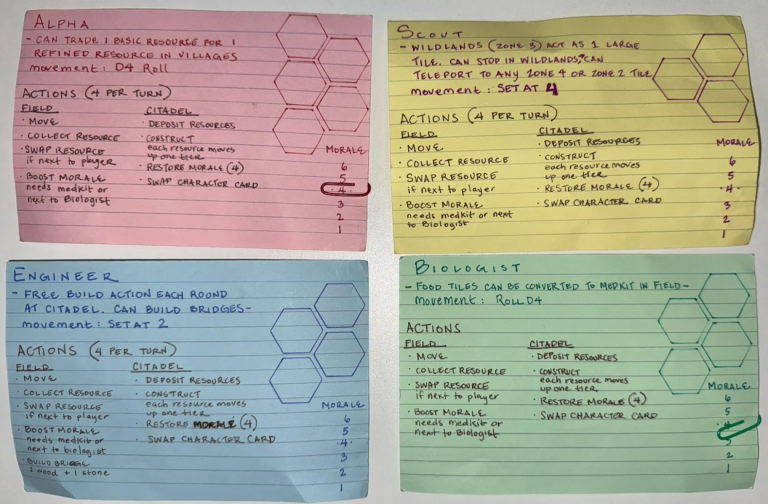 ALPHA
- CAN TRADE 1 BASIC RESOURCE FOR 1
REFINED RESOURCE IN VILLAGES
movement: D4 Roll
ACTIONS (4 PER TURN)
FIELD
· MOVE
· COLLECT RESOURCE
· SWAP RESOURCE
if next to player
· BOOST MORALE
needs medkit or
next to Biologist
CITADEL
· DEPOSIT RESOURCES
· CONSTRUCT
each resource moves
up one tier
· RESTORE MORALE (4)
· SWAP CHARACTER CARD
MORALE
6
5
·4·
3
2
1
SCOUT
- WILDLANDS (ZONE 3) ACT AS 1 LARGE
TILE. CAN STOP IN WILDLANDS, CAN
TELEPORT TO ANY ZONE 4 OR ZONE 2 TILE
movement: SET AT 4
ACTIONS (4 PER TURN)
FIELD
· MOVE
· COLLECT RESOURCE
· SWAP RESOURCE
if next to player
· BOOST MORALE
needs medkit or next
to Biologist
CITADEL
· DEPOSIT RESOURCES
· CONSTRUCT
each resource moves
up one tier
· RESTORE MORALE (4)
· SWAP CHARACTER CARD
MORALE
6
5
·4·
3
2
1
ENGINEER
- FREE BUILD ACTION EACH ROUND
AT CITADEL. CAN BUILD BRIDGES-
movement: SET AT 2
ACTIONS (4 PER TURN)
FIELD
· MOVE
· COLLECT RESOURCE
· SWAP RESOURCE
if next to player
· BOOST MORALE
needs medkit or
next to biologist
· BUILD BRIDGE
2 wood + 1 stone
CITADEL
· DEPOSIT RESOURCES
· CONSTRUCT
each resource moves
up one tier
· RESTORE MORALE (4)
· SWAP CHARACTER CARD
MORALE
6
5
·4·
3
2
1
BIOLOGIST
- FOOD TILES CAN BE CONVERTED TO MEDKIT IN FIELD -
movement: ROLL D4
ACTIONS
FIELD
· MOVE
· COLLECT RESOURCE
· SWAP RESOURCE
if next to player
· BOOST MORALE
needs medkit or
next to Biologist
CITADEL
· DEPOSIT RESOURCES
· CONSTRUCT
each resource moves
up one tier
· RESTORE MORALE (4)
· SWAP CHARACTER CARD
MORALE
6
5
3
2
1